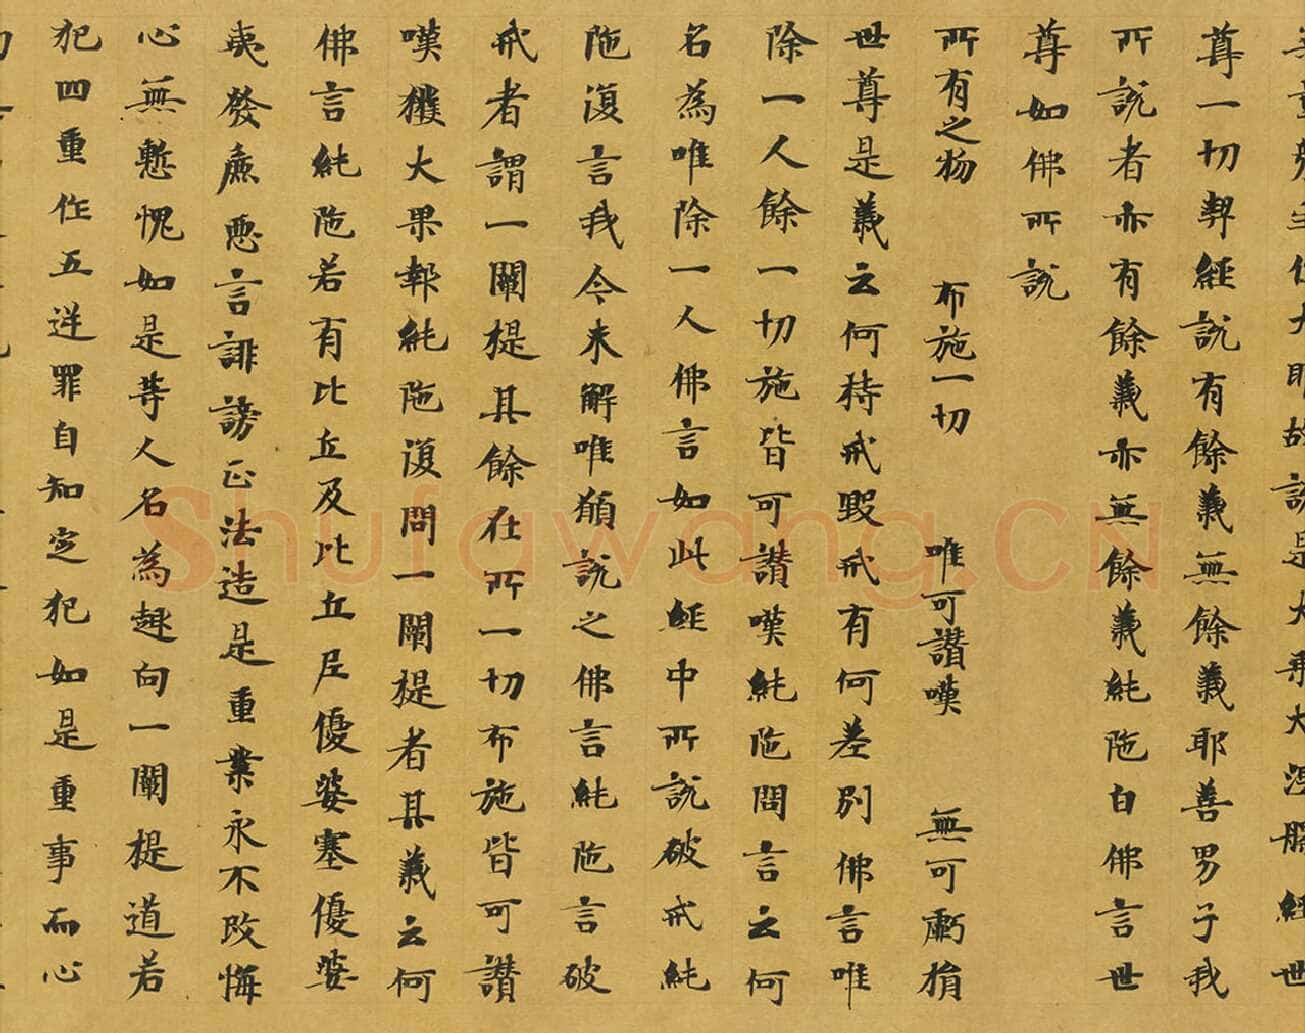 尊一切契經說有餘義無餘義耶善男子我
所說者亦有餘義亦無餘義純陁白佛言世
尊如佛所說
所有之物 布施一切 唯可讃嘆 無可虧損
世尊是義云何持戒毀戒有何差別佛言唯
除一人餘一切施皆可讃嘆純陁問言云何
名為唯除一人佛言如此經中所說破戒純
陁復言我今未解唯願說之佛言純陁言破
戒者謂一闡提其餘在所一切布施皆可讃
嘆獲大果報純陁復問一闡提者其義云何
佛言純陁若有比丘及比丘尼優婆塞優婆
夷發麁惡言誹謗正法造是重業永不改悔
心無慙愧如是等人名為趣向一闡提道若
犯四重作五逆罪自知定犯如是重事而心
Shufawang.CN